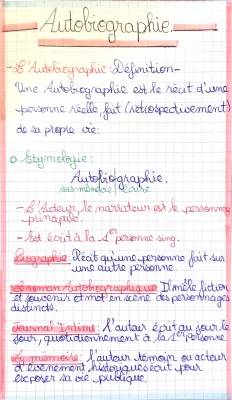 Autobiographie.
- L'Autobiographie: Définition -
Une Autobiographie est le récit d'une
personne réelle, fait (rétrospectivement)
de sa propre vie.
o Etymologie:
Autobiographie.
vie écrire
- L'Auteur, le narrateur est le personnage
principale.
- Est écrit à la 1ere personne sing.
Biographie: Récit qu'une personne fait sur
une autre personne.
Le roman Autobiographique: Il mêle fiction
et souvenir et met en scène des personnages
distincts.
Journal Intime: L'auteur écrit au jour le
jour, quotidiennement à la 1ere Personne
Les mémoires: L'auteur témoin ou acteur
d'évenement historiques écrit pour
exposer sa vie publique.